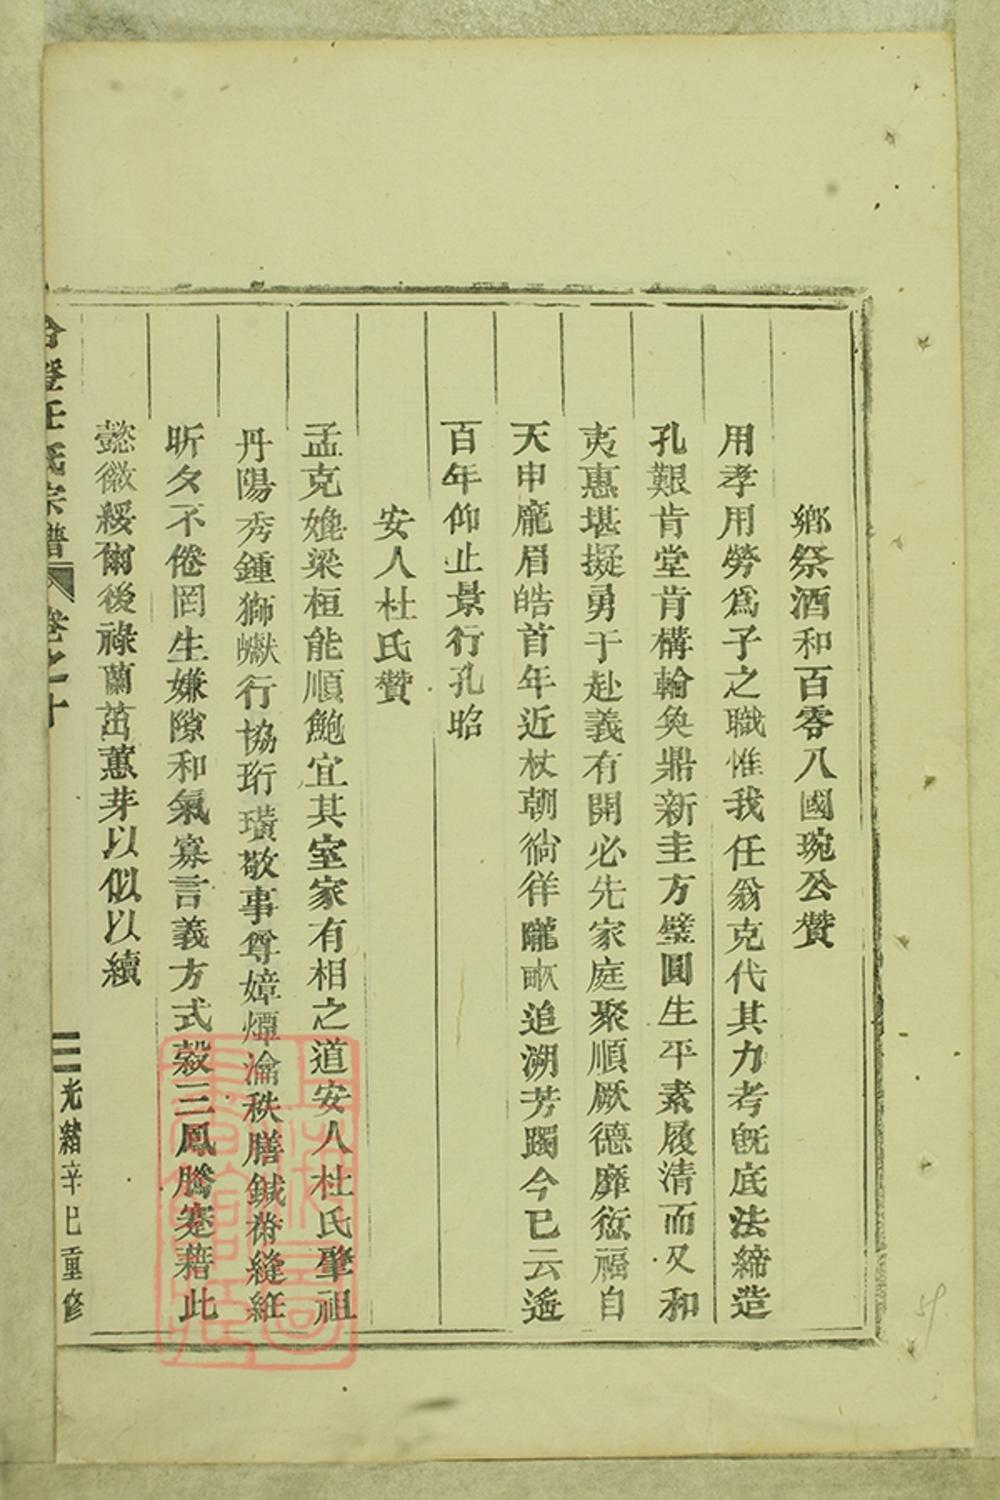 鄉祭酒和百零八國琬公贊
用孝用勞爲子之職惟我任翁克代其力考旣底法締造
孔艱肯堂肯構輪奐鼎新圭方璧圓生平素履清而又和
夷惠堪擬勇于赴義有開必先家庭聚順厥德靡愆福自
天申龐眉皓首年近杖朝徜徉隴畝追溯芳躅今已云遙
百年仰止景行孔昭
安人杜氏贊
孟克媲梁桓能順鮑宜其室家有相之道安人杜氏肇祖
丹陽秀鍾獅巘行協珩璜敬事尊嫜燂瀹秩膳鍼黹縫紝
昕夕不倦罔生嫌隙和氣寡言義方式穀三鳳騰騫藉此
懿徽綏爾後祿蘭茁蕙芽以似以續
澄任氏宗譜 卷之十 二 光緒辛巳重修